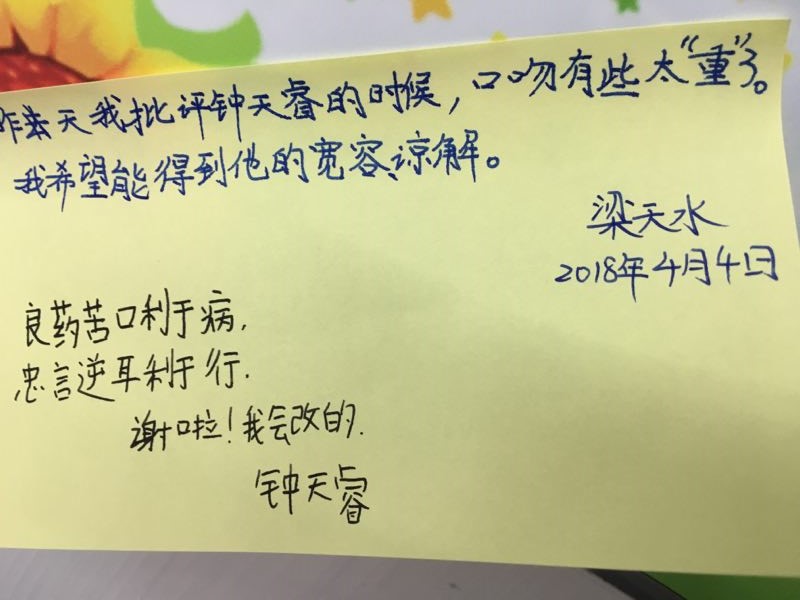 昨天我批评钟天睿的时候，口吻有些太“重”了。
我希望能得到他的宽容、谅解。
梁天水
2018年4月4日
良药苦口利于病，
忠言逆耳利于行.
谢啦！我会改的.
钟天睿